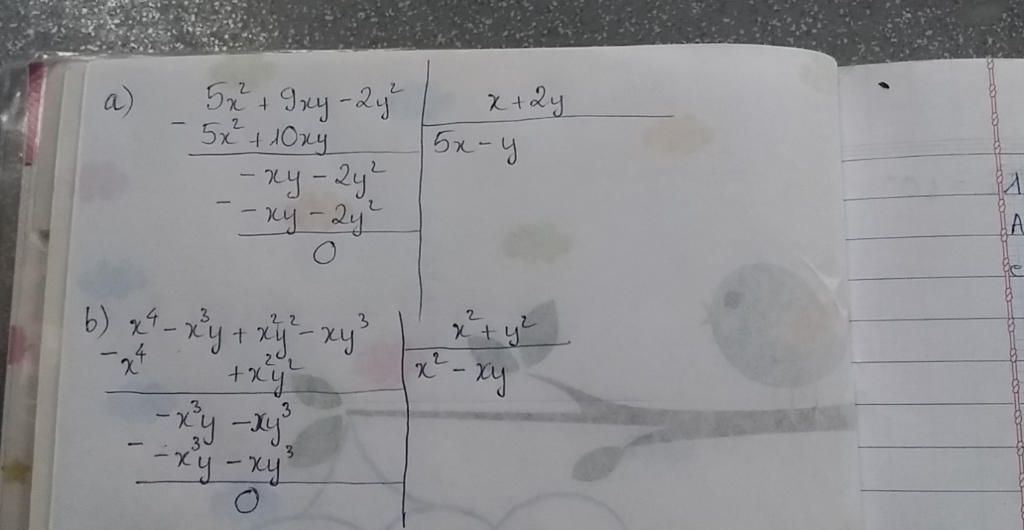 a) 5x² + 9xy - 2y² x + 2y
- 5x² + 10xy 5x - y
- xy - 2y²
- - xy - 2y²
0
b) x⁴ - x³y + x²y² - xy³ x² + y²
- x⁴ + x²y² x² - xy
- x³y - xy³
- - x³y - xy³
0
1
A
e